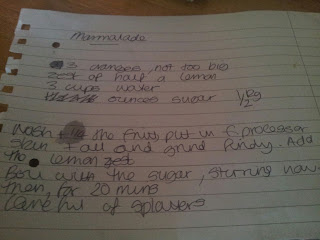 Marmalade
3 oranges, not too big
zest of half a lemon
3 cups water
ounces sugar 1/2 kg
Wash the fruit, put in f. processor
skin + all and grind finely. Add
the lemon zest
Boil with the sugar, stirring now +
then, for 20 mins
Careful of splatters